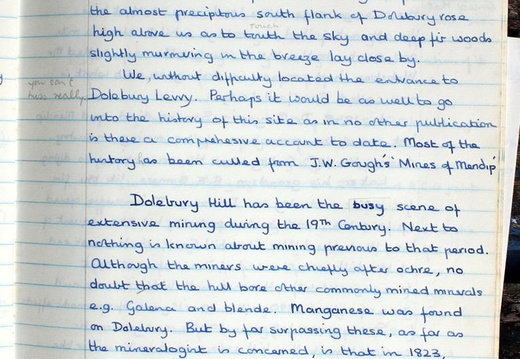 the almost precipitous south flank of Dolebury rose
touch
high above us as to touth the sky and deep fir woods
slightly murmuring in the breeze lay close by.
We, without difficulty located the entrance to
you can't
miss really
Dolebury Levvy. Perhaps it would be as well to go
into the history of this site as in no other publication
is there a comprehesive account to date. Most of the
history as been culled from J.W. Gough's 'Mines of Mendip'
Dolebury Hill has been the busy scene of
extensive mining during the 19th Century. Next to
nothing is known about mining previous to that period.
Although the miners were chiefly after ochre, no
doubt that the hill bore other commonly mined minerals
e.g. Galena and blende. Manganese was found
on Dolebury. But by far surpassing these, as far as
the mineralogist is concerned, is that in 1823,